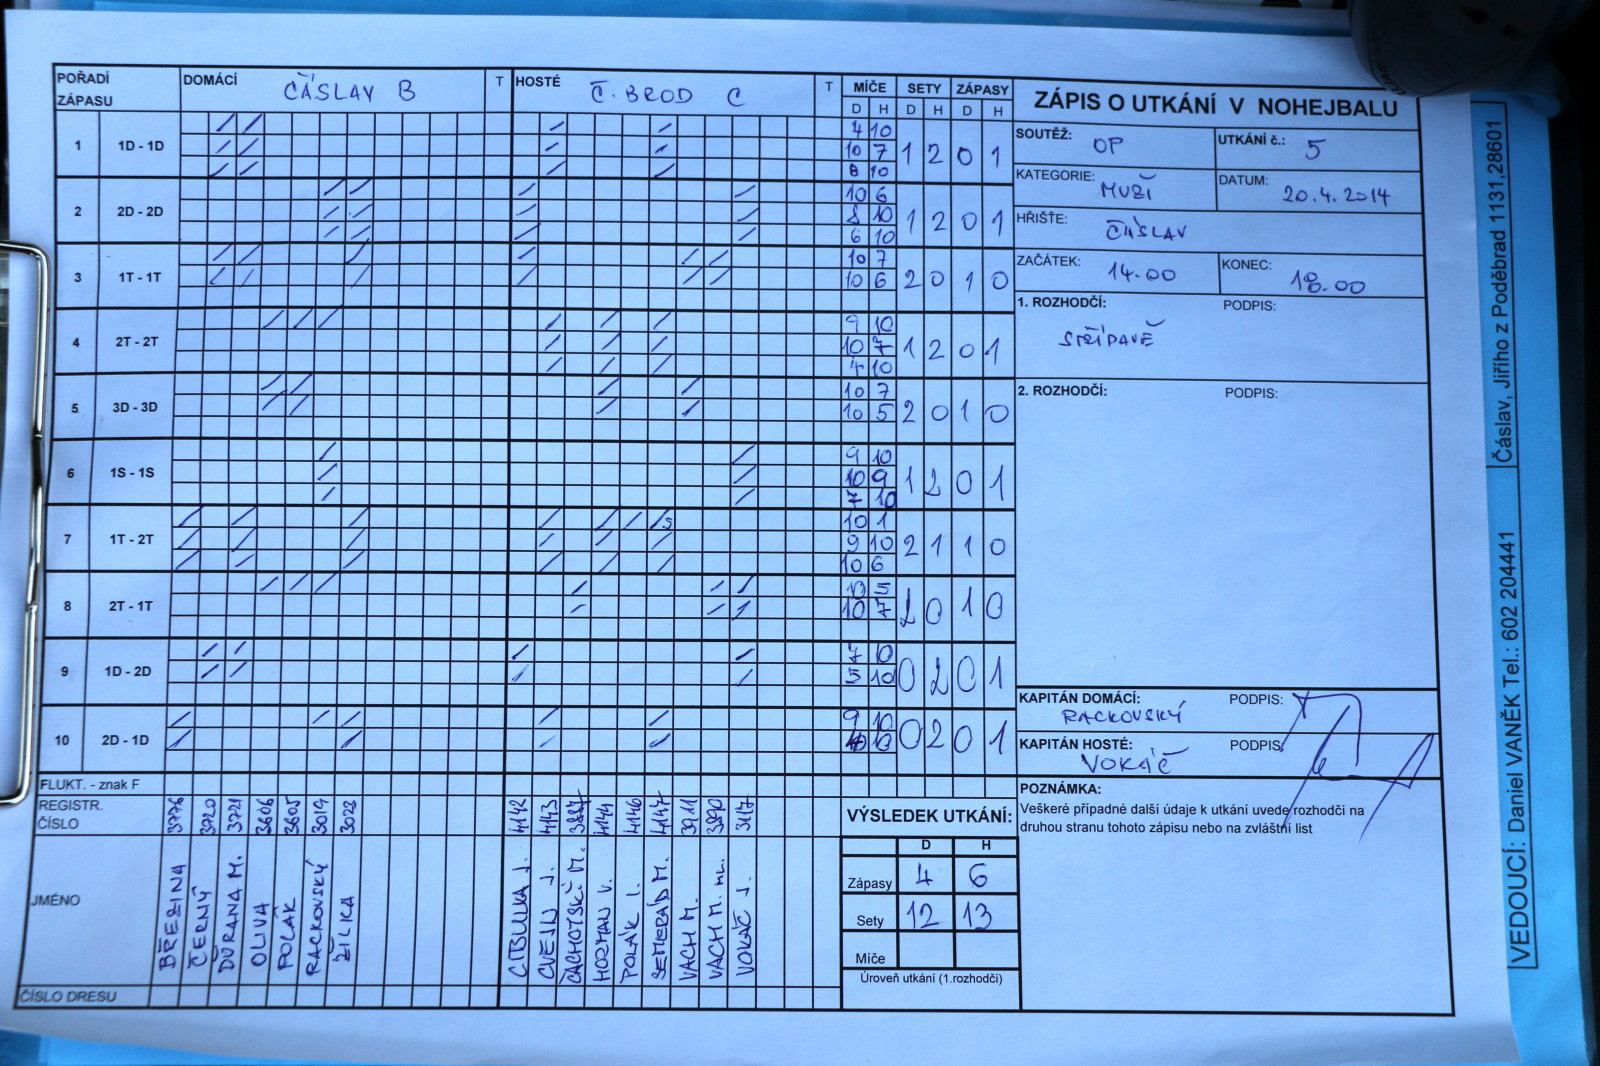 POŘADÍ ZÁPASU DOMÁCÍ ČÁSLAV B T HOSTÉ Č. BROD C T MÍČE SETY ZÁPASY
D H D H D H
1 1D - 1D 4 10 1 2 0 1
10 7
8 10
2 2D - 2D 10 6 1 2 0 1
8 10
6 10
3 1T - 1T 10 7 2 0 1 0
10 6
4 2T - 2T 9 10 1 2 0 1
10 7
4 10
5 3D - 3D 10 7 2 0 1 0
10 5
6 1S - 1S 9 10 1 2 0 1
10 9
7 10
7 1T - 2T 10 1 2 1 1 0
9 10
10 6
8 2T - 1T 10 5 2 0 1 0
10 7
9 1D - 2D 7 10 0 2 0 1
5 10
10 2D - 1D 9 10 0 2 0 1
10
FLUKT. - znak F
REGISTR. ČÍSLO 3776 3720 3721 3606 3605 3019 3028 4142 4143 3887 4144 4146 4147 3911 3890 3147
JMÉNO BŘEZINA ČERNÝ ĎURANA M. OLIVA POLÁK RACKOVSKÝ ŽILKA CIBULKA J. CVEJN J. CACHOTSKÝ M. HOZMAN V. POLÁK I. SEMERÁD M. VACH M. VACH M. ML. VOKÁČ J.
ČÍSLO DRESU
VÝSLEDEK UTKÁNÍ:
D H
Zápasy 4 6
Sety 12 13
Míče
Úroveň utkání (1.rozhodčí)
ZÁPIS O UTKÁNÍ V NOHEJBALU
SOUTĚŽ: OP UTKÁNÍ č.: 5
KATEGORIE: MUŽI DATUM: 20.4.2014
HŘIŠTĚ: ČÁSLAV
ZAČÁTEK: 14.00 KONEC: 18.00
1. ROZHODČÍ: PODPIS:
STŘÍDAVĚ
2. ROZHODČÍ: PODPIS:
KAPITÁN DOMÁCÍ: PODPIS:
RACKOVSKÝ
KAPITÁN HOSTÉ: PODPIS:
VOKÁČ
POZNÁMKA:
Veškeré případné další údaje k utkání uvede rozhodčí na
druhou stranu tohoto zápisu nebo na zvláštní list
Čáslav, Jiřího z Poděbrad 1131,28601
VEDOUCÍ: Daniel VANĚK Tel.: 602 204441